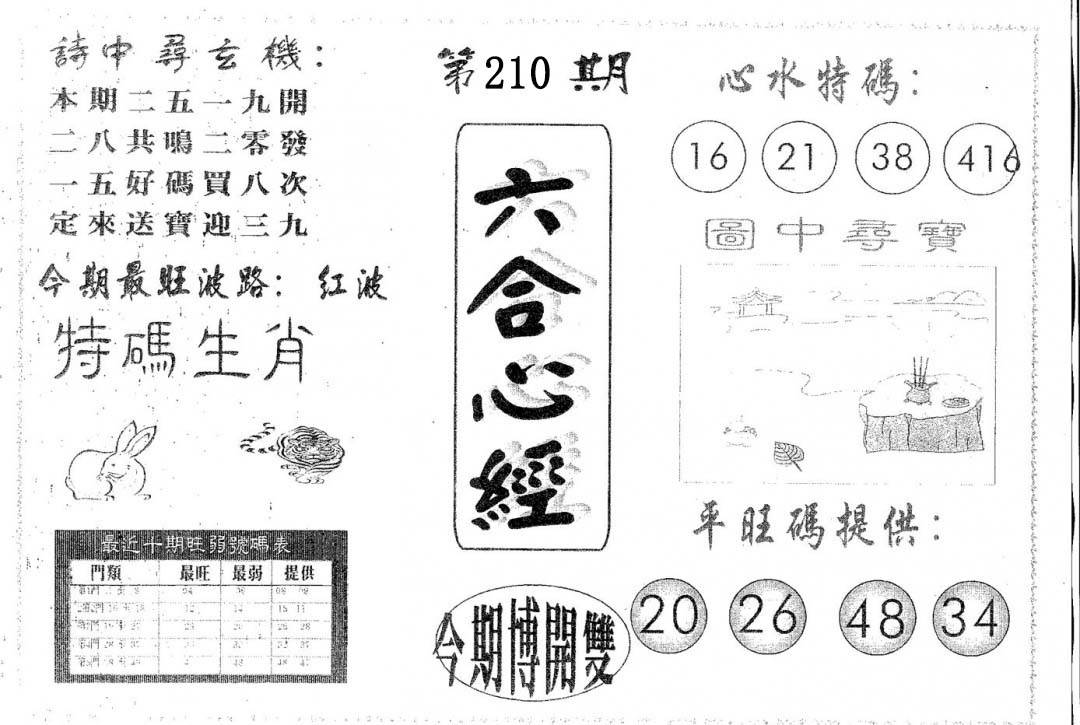 詩中尋玄機：
本期二五一九開
二八共鳴二零發
一五好碼買八次
定來送寶迎三九
今期最旺波路： 红波
特碼生肖
最近十期旺弱號碼表
門類 最旺 最弱 提供
第210期
六合心經
今期博開雙
心水特碼：
16 21 38 416
圖中尋寶
平旺碼提供：
20 26 48 34